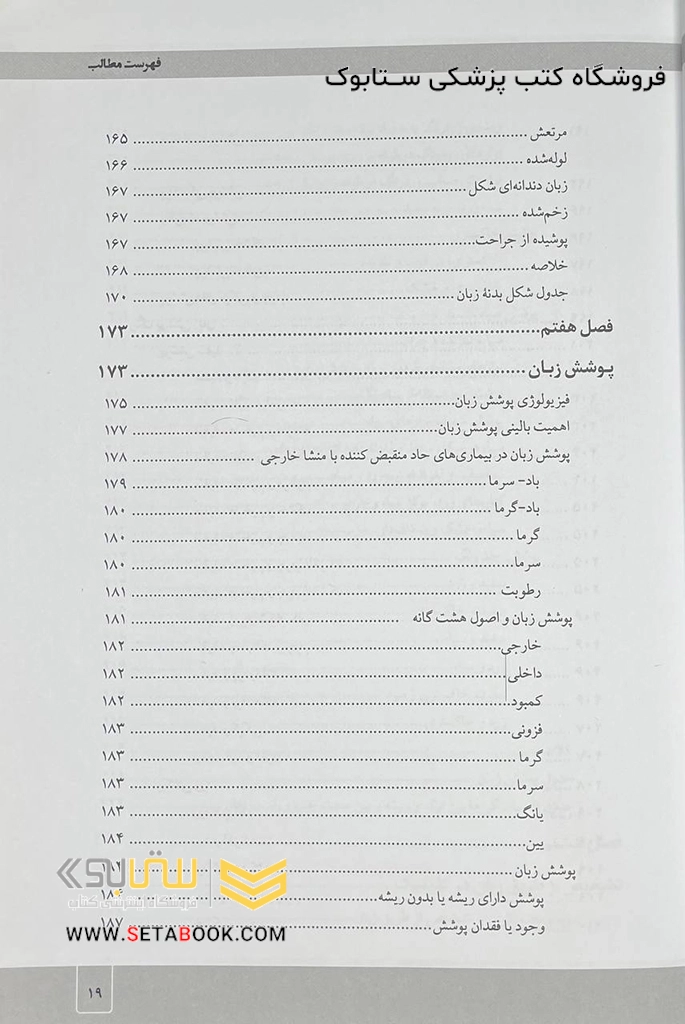 فهرست مطالب
فروشگاه کتب پزشکی ستابوک
مرتعش ........ ۱۶۵
لوله‌شده ........ ۱۶۶
زبان دندانه‌ای شکل ........ ۱۶۷
زخم‌شده ........ ۱۶۷
پوشیده از جراحت ........ ۱۶۷
خلاصه ........ ۱۶۸
جدول شکل بدنهٔ زبان ........ ۱۷۰
فصل هفتم ........ ۱۷۳
پوشش زبان ........ ۱۷۳
فیزیولوژی پوشش زبان ........ ۱۷۵
اهمیت بالینی پوشش زبان ........ ۱۷۷
پوشش زبان در بیماری‌های حاد منقبض کننده با منشا خارجی ........ ۱۷۸
باد- سرما ........ ۱۷۹
باد-گرما ........ ۱۸۰
گرما ........ ۱۸۰
سرما ........ ۱۸۰
رطوبت ........ ۱۸۱
پوشش زبان و اصول هشت گانه ........ ۱۸۱
خارجی ........ ۱۸۲
داخلی ........ ۱۸۲
کمبود ........ ۱۸۲
فزونی ........ ۱۸۳
گرما ........ ۱۸۳
سرما ........ ۱۸۳
یانگ ........ ۱۸۳
یین ........ ۱۸۴
پوشش زبان ........
پوشش دارای ریشه یا بدون ریشه ........ ۱۸۶
وجود یا فقدان پوشش ........ ۱۸۷
ستابوک
فروشگاه اینترنتی کتاب
WWW.SETABOOK.COM
۱۹